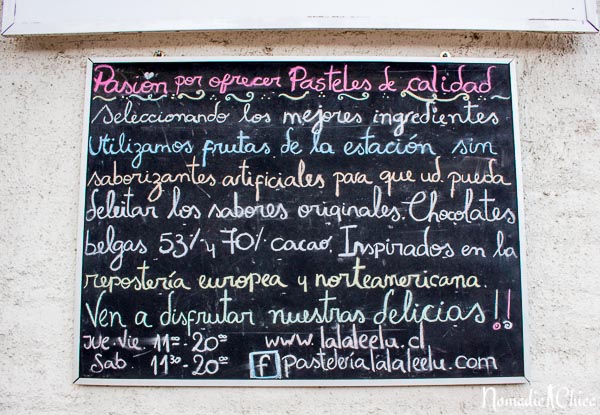 Pasión por ofrecer Pasteles de calidad
Seleccionando los mejores ingredientes
Utilizamos frutas de la estación sin
saborizantes artificiales para que ud. pueda
deleitar los sabores originales. Chocolates
belgas 53% y 70% cacao. Inspirados en la
repostería europea y norteamericana.
Ven a disfrutar nuestras delicias!!
Jue. Vie. 11:00 - 20:00 www.lalaleelu.cl
Sab. 11:30 - 20:00 f pasteleríalalaleelu.com
Nomadic Chica